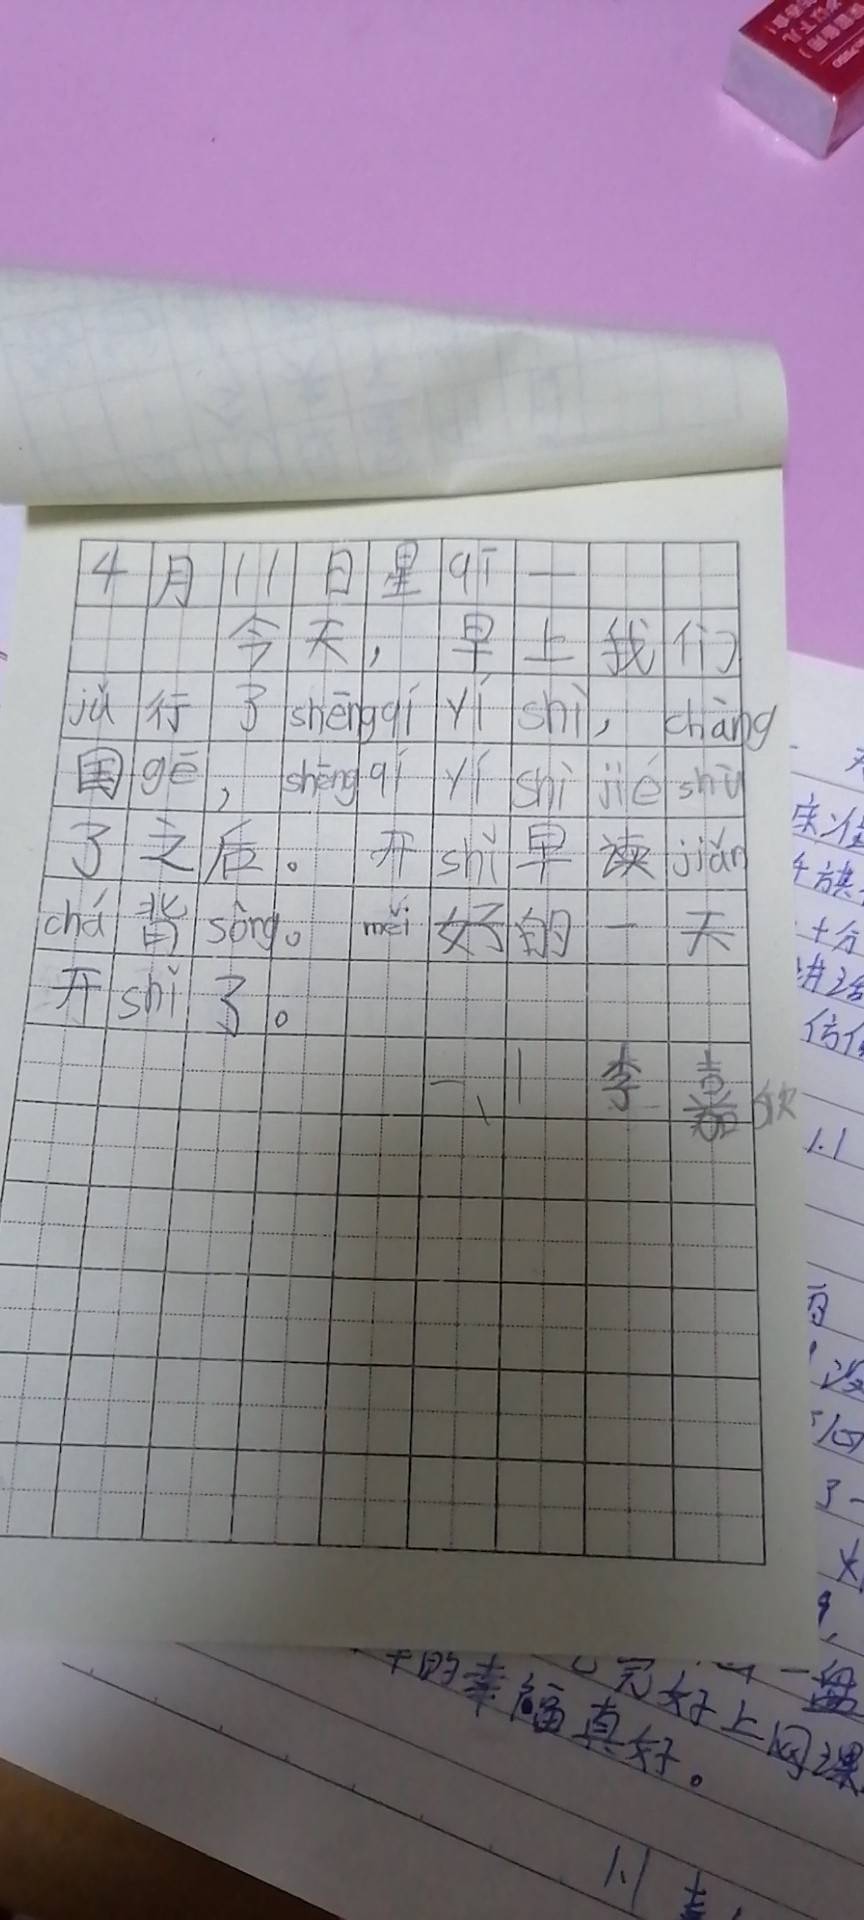 4月11日星qī一
今天，早上我们
jǔ行了shēngqí yí shì，chàng
国gē，shēngqí yí shì jié shù
了之后。开shǐ早读jiǎn
chá背sòng。měi好的一天
开shǐ了。
一、1 李嘉欣
的幸福真好。
好上网课
1.1